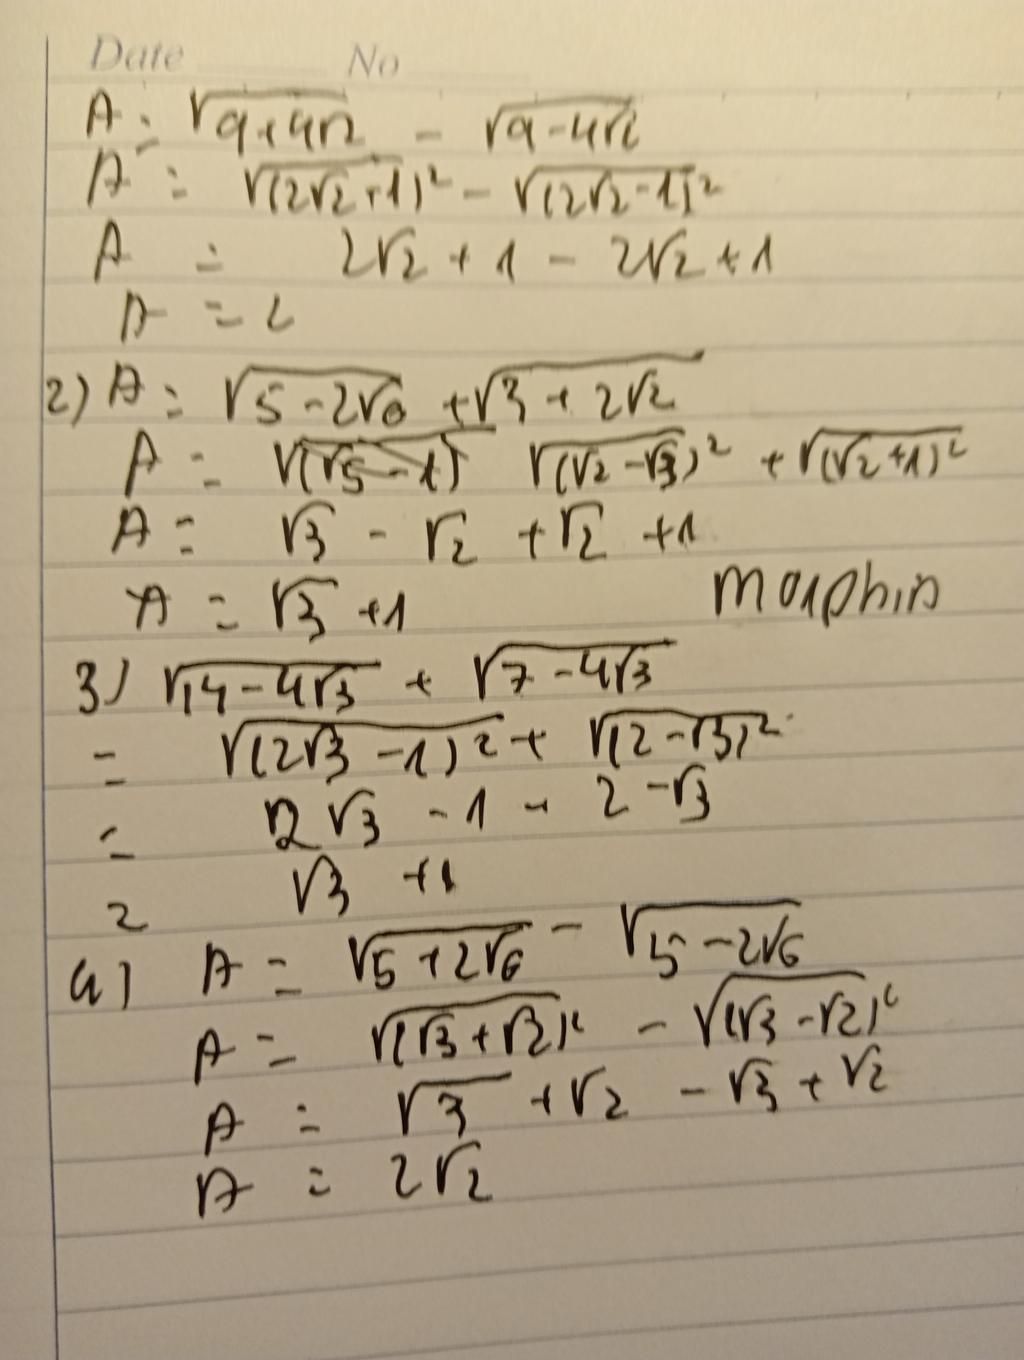 Date No
A = √(9+4√2) - √(9-4√2)
A = √(2√2+1)² - √(2√2-1)²
A = 2√2 + 1 - 2√2 + 1
A = 2
2) A = √(5-2√6) + √(3+2√2)
A = √(√5-1) √(√2-√3)² + √(√2+1)²
A = √3 - √2 + √2 + 1
A = √3 + 1 Morphin
3) √(14-4√3) + √(7-4√3)
= √(2√3-1)² + √(2-√3)²
= 2√3 - 1 + 2 - √3
= √3 + 1
4) A = √(5+2√6) - √(5-2√6)
A = √(√3+√2)² - √(√3-√2)²
A = √3 + √2 - √3 + √2
A = 2√2